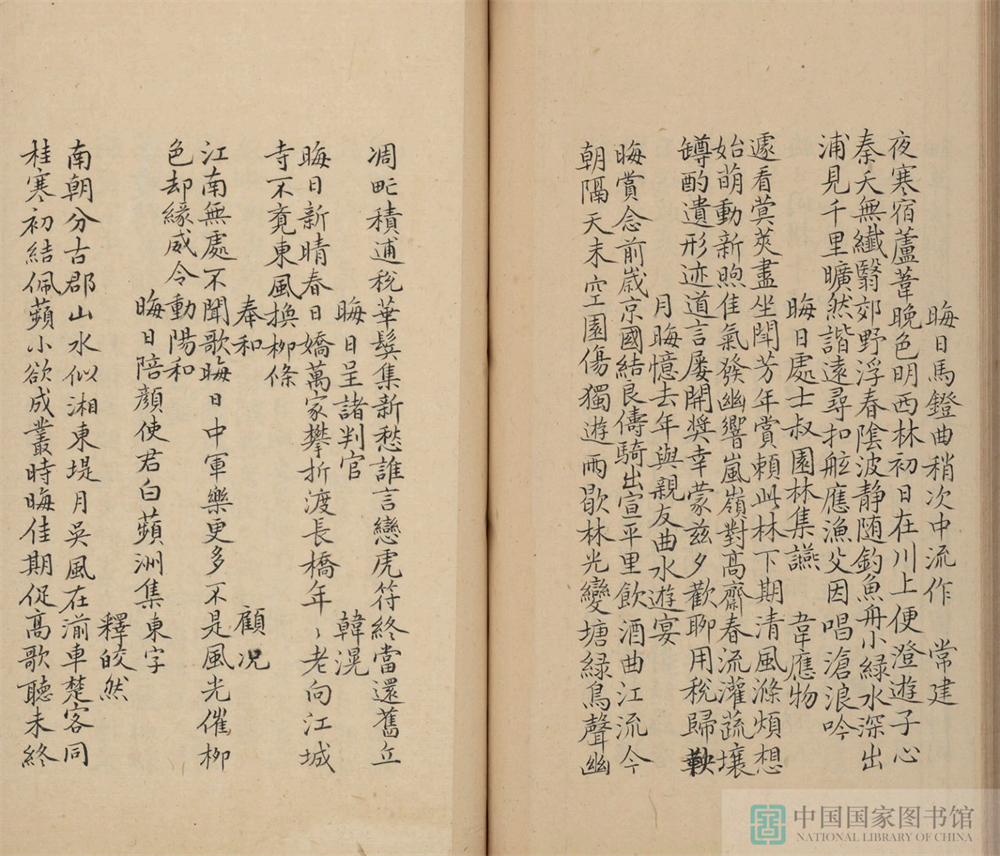 晦日馬鐙曲稍次中流作 常建
夜寒宿蘆葦晚色明西林初日在川上便澄遊子心
秦天無纖翳郊野浮春陰波静随釣魚舟小綠水深出
浦見千里曠然諧遠尋扣舷應漁父因唱滄浪吟
晦日處士叔園林集讌 韋應物
遽看蓂莢盡坐聞芳年賞賴此林下期清風滌煩想
始萌動新煦佳氣發幽響嵐嶺對高齋春流灌蔬壤
罇酌遺形迹道言屢開奨幸蒙兹夕歡聊用稅歸鞅
月晦憶去年與親友曲水遊宴
晦賞念前歲京國結良儔騎出宣平里飲酒曲江流今
朝隔天末空園傷獨遊雨歇林光變塘綠鳥聲幽
凋甿積逋稅華鬓集新愁誰言戀虎符終當還舊丘
晦日呈諸判官 韓滉
晦日新晴春日嬌萬家攀折渡長橋年〻老向江城
寺不覔東風换柳條
奉和 顧况
江南無處不聞歌晦日中軍樂更多不是風光催柳
色却緣威令動陽和
晦日陪顔使君白蘋洲集東字
釋皎然
南朝分古郡山水似湘東堤月吳風在湔車楚客同
桂寒初結佩蘋小欲成叢時晦佳期促高歌聽未終
中国国家图书馆
NATIONAL LIBRARY OF CHINA